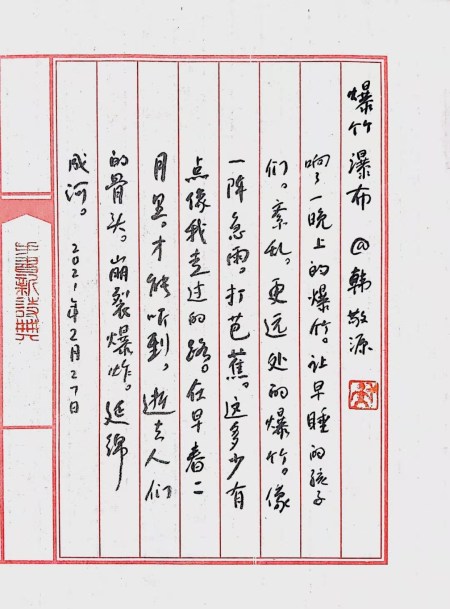 爆竹瀑布 @韩敬源
响了一晚上的爆竹。让早睡的孩子
们。紊乱。更远处的爆竹。像
一阵急雨。打芭蕉。这多少有
点像我走过的路。在早春二
月里。才能听到。逝去人们
的骨头。崩裂爆炸。延绵
成河。 2021年2月27日